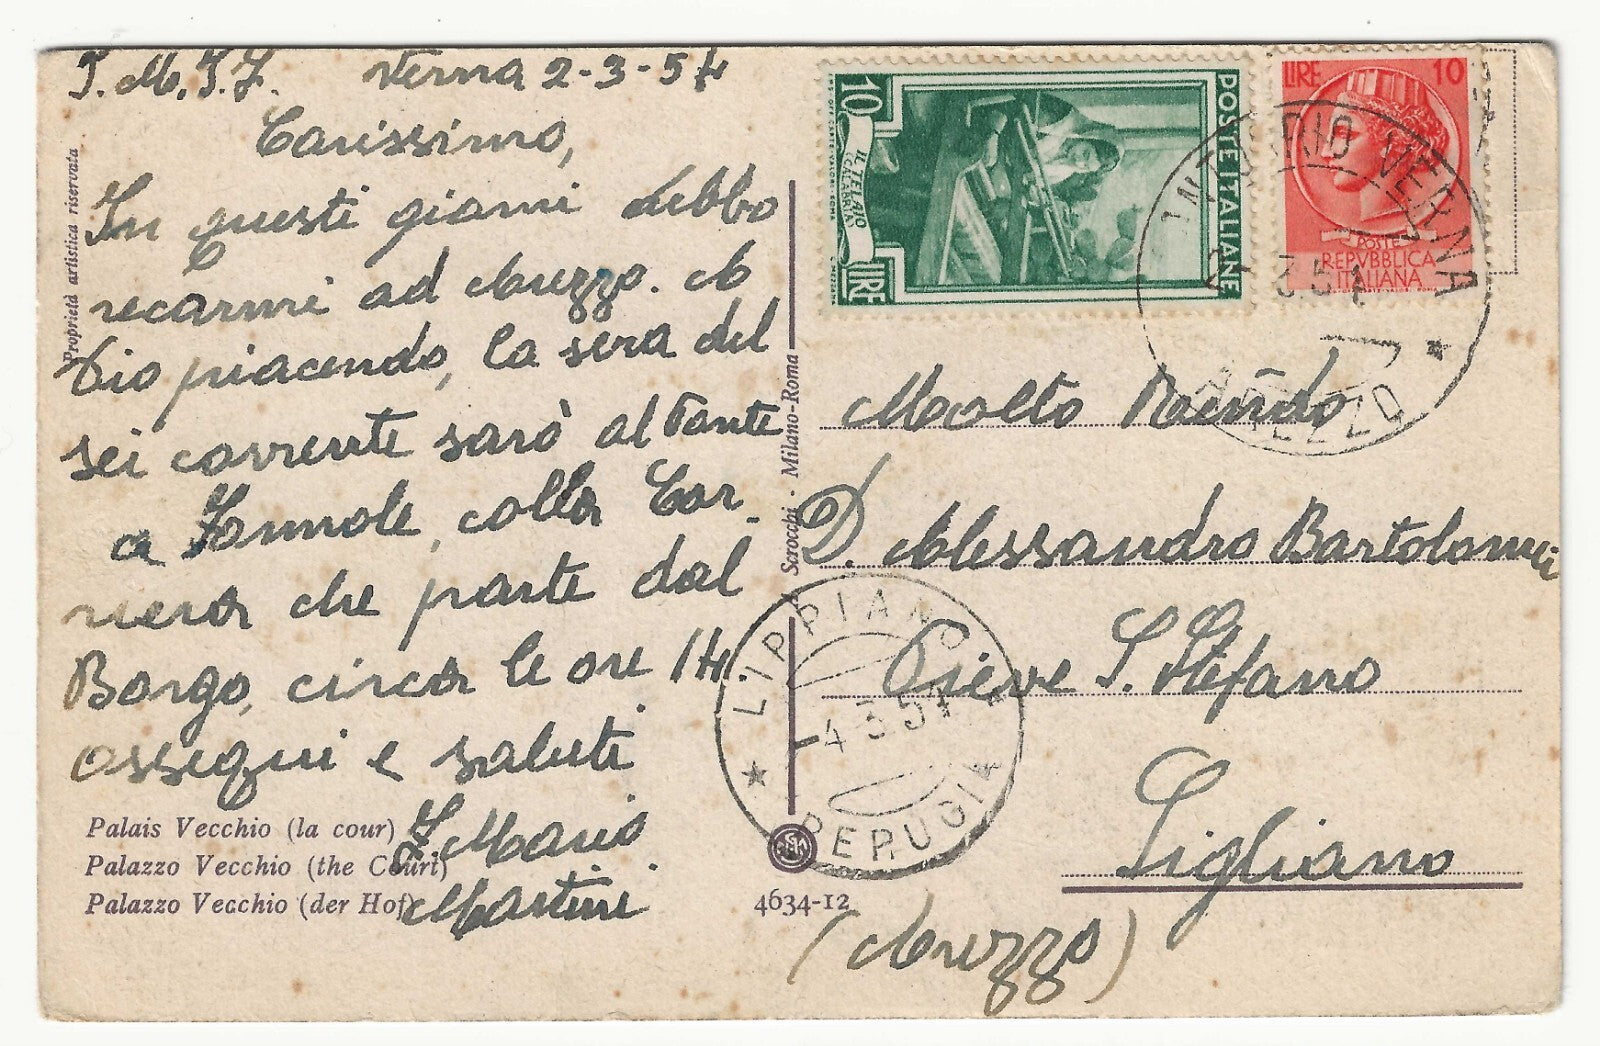 J.M.J.F. Verna 2-3-54
Carissimo,
In questi giorni debbo
recarmi ad Arezzo. A
Dio piacendo, la sera del
sei corrente sarò al Fante
a Fonnole, colla Cor-
riera che parte dal
Borgo, circa le ore 14
ossequi e saluti
F. Mario
Martini
Palais Vecchio (la cour)
Palazzo Vecchio (the Court)
Palazzo Vecchio (der Hof)
Proprietà artistica riservata
Scrocchi - Milano-Roma
4634-12
10 LIRE
IL TELAIO
CALABRIA
POSTE ITALIANE
LIRE 10
POSTE
REPVBBLICA
ITALIANA
SANTUARIO VERNA
2-3 54
AREZZO
LIPPIANO
-4 3 54
PERUGIA
Molto Revdo
D. Alessandro Bartolomei
Pieve S. Stefano
Sigliano
(Arezzo)